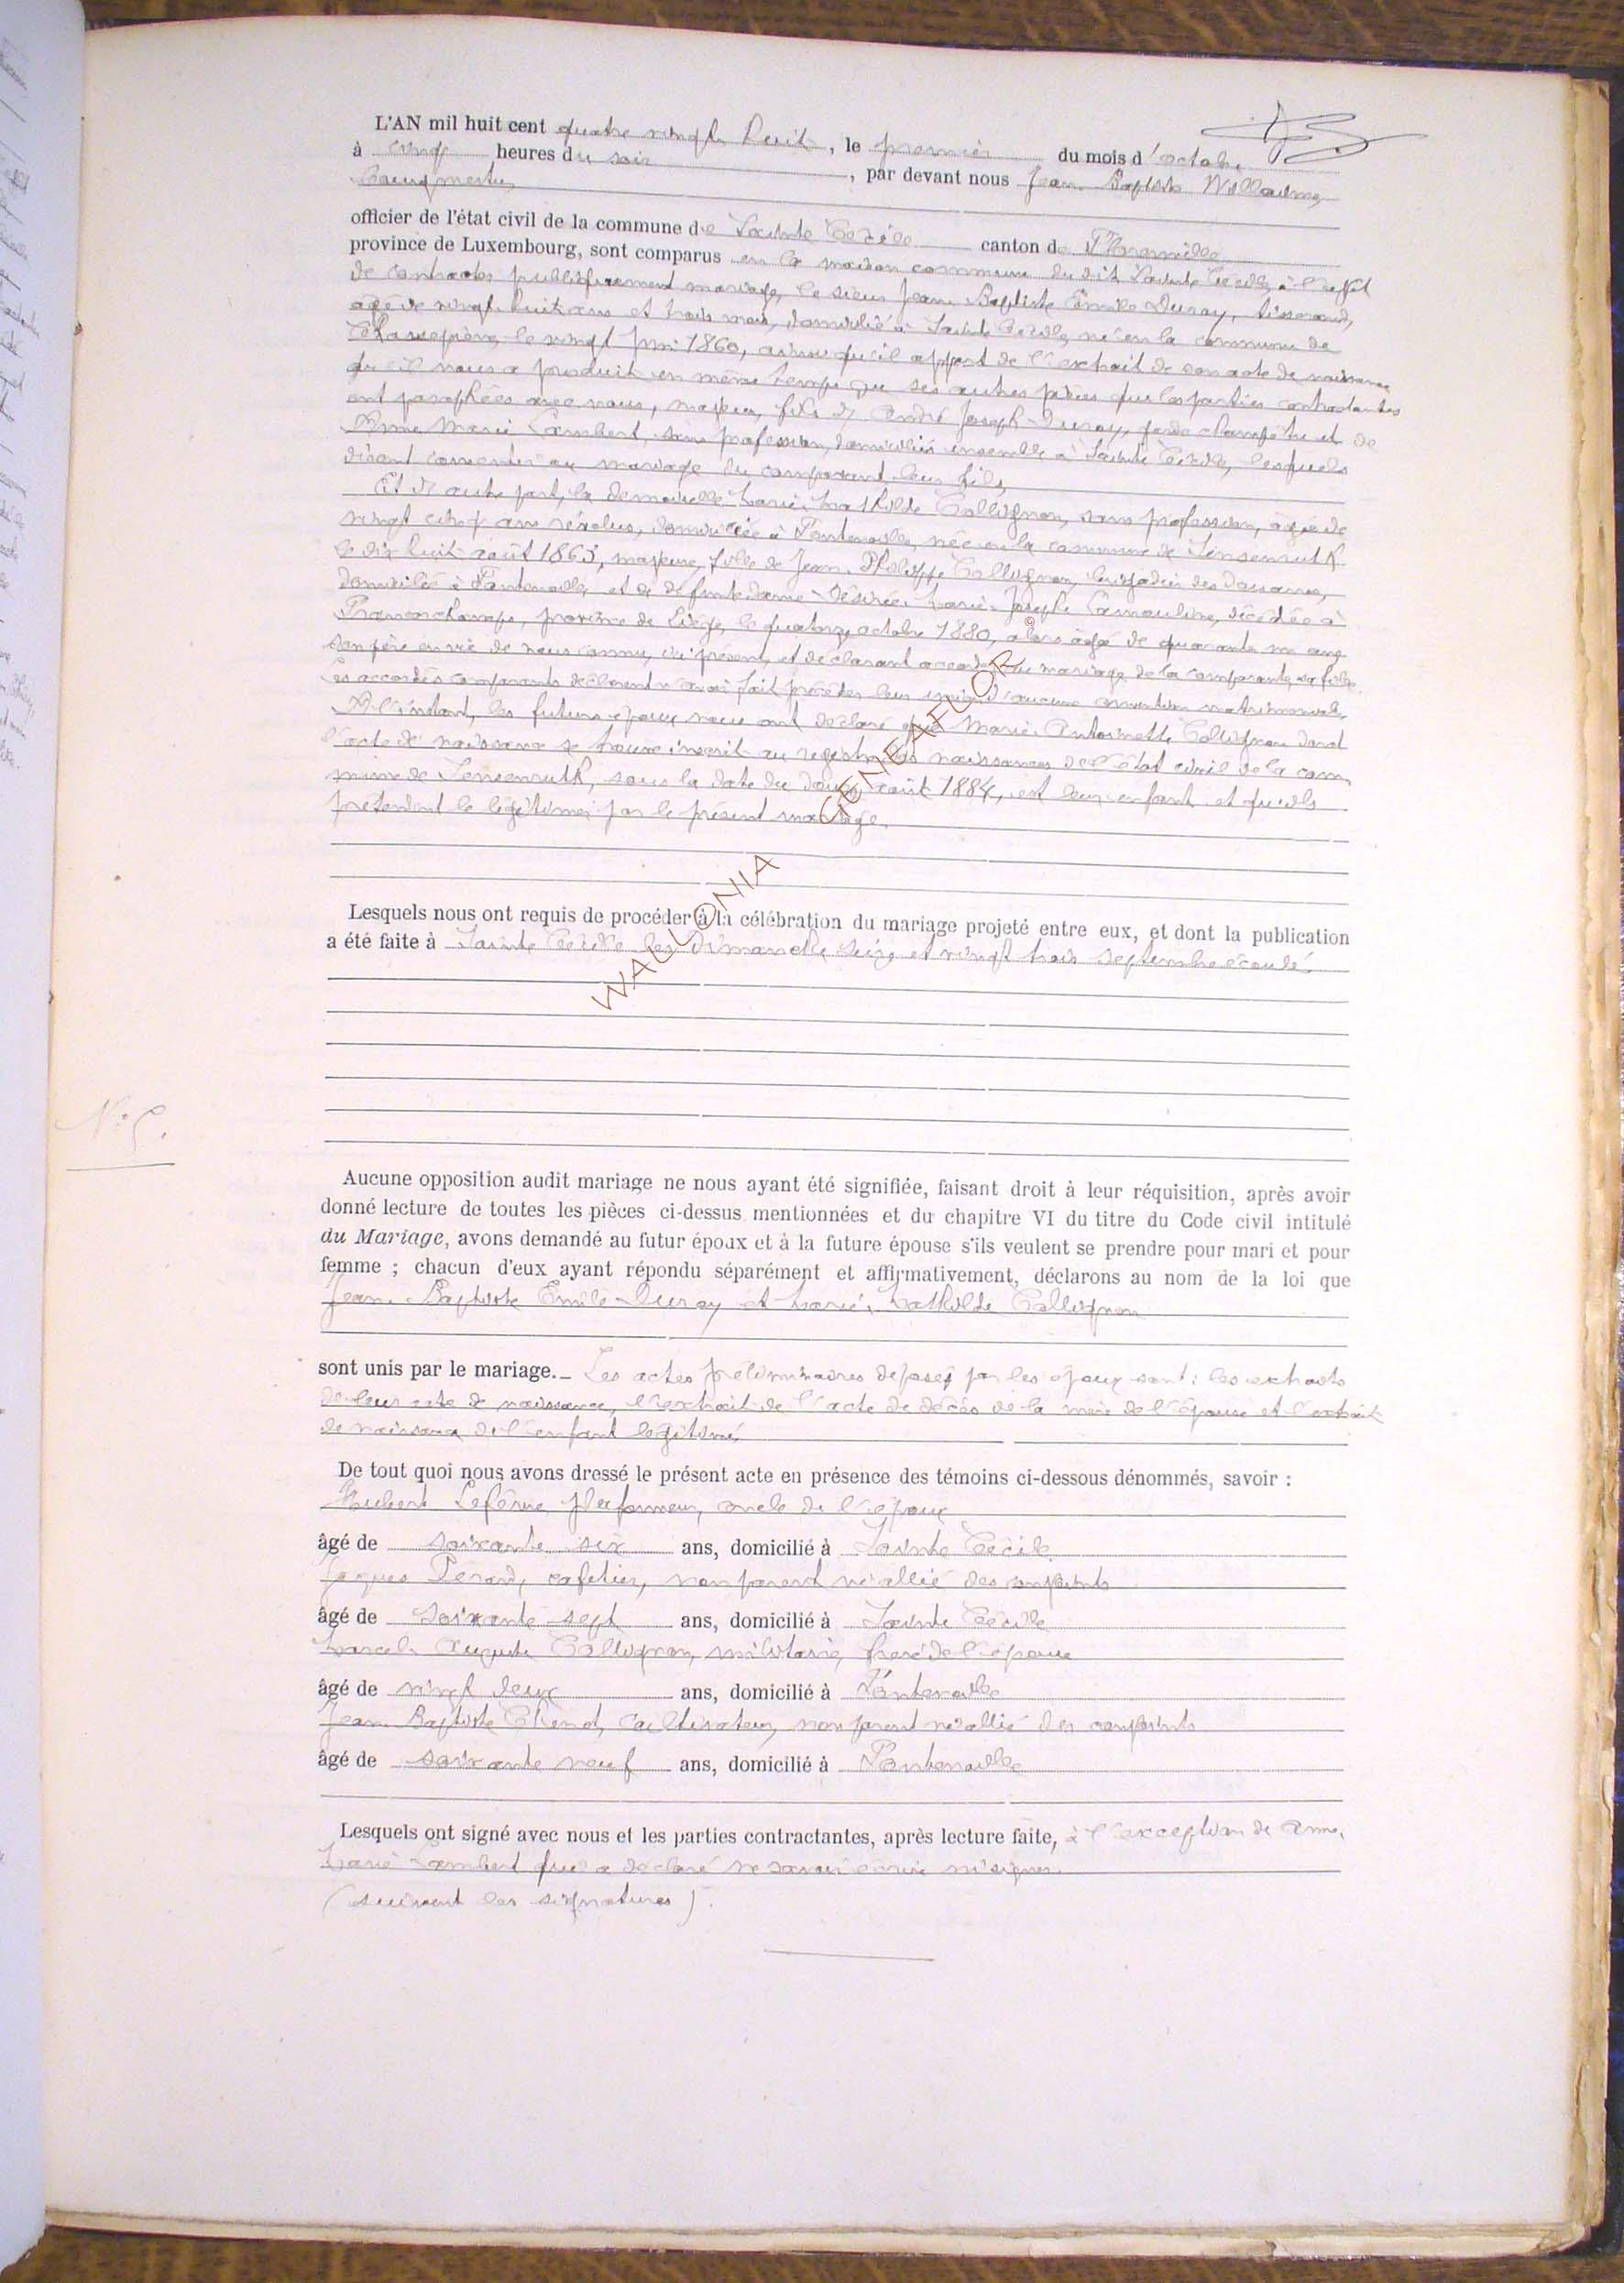 L'AN mil huit cent quatre vingt huit, le premier du mois d'octobre
à cinq heures du soir, par devant nous Jean Baptiste Willaime,
Bourgmestre,
officier de l'état civil de la commune de Sainte Cécile canton de Florenville
province de Luxembourg, sont comparus en la maison commune du dit Sainte Cécile, à l'effet
de contracter publiquement mariage, le sieur Jean Baptiste Émile Duroy, tisserand,
âgé de vingt huit ans et trois mois, domicilié à Sainte Cécile, né en la commune de
le vingt juin 1860, ainsi qu'il appert de l'extrait de son acte de naissance
qu'il nous a produit en même temps que ses autres pièces que les parties contractantes
ont paraphées avec nous, majeur, fils de André Joseph Duroy, garde champêtre et de
Anne Marie Lambert, sans profession, domiciliés ensemble à Sainte Cécile, lesquels
disent consentir au mariage du comparant leur fils,
Et d'autre part, la demoiselle Marie Mathilde Collignon, sans profession, âgée de
vingt cinq ans révolus, domiciliée à Fontenoille, née en la commune de Sensenruth
le dix huit août 1863, majeure, fille de Jean Philippe Collignon, des douanes,
domicilié à Fontenoille, et de défunte dame Désirée Marie Josèphe décédée à
Francorchamps, province de Liège, le quatorze octobre 1880, alors âgée de quarante un ans
son père en vie de nous connu, ici présent, et déclarant accorder au mariage de la comparante, sa fille.
Les accordés comparants déclarent n'avoir fait précéder leur union d'aucune convention matrimoniale.
A l'instant, les futurs époux nous ont déclaré que Marie Antoinette Collignon dont
l'acte de naissance se trouve inscrit au registre des naissances de l'état civil de la com
mune de Sensenruth, sous la date du douze août 1884, est leur enfant et qu'ils
prétendent le légitimer par le présent mariage.
Lesquels nous ont requis de procéder à la célébration du mariage projeté entre eux, et dont la publication
a été faite à Sainte Cécile les dimanche seize et vingt trois septembre écoulé.
N° 5.
Aucune opposition audit mariage ne nous ayant été signifiée, faisant droit à leur réquisition, après avoir
donné lecture de toutes les pièces ci-dessus mentionnées et du chapitre VI du titre du Code civil intitulé
du Mariage, avons demandé au futur époux et à la future épouse s'ils veulent se prendre pour mari et pour
femme ; chacun d'eux ayant répondu séparément et affirmativement, déclarons au nom de la loi que
Jean Baptiste Émile Duroy et Marie Mathilde Collignon
sont unis par le mariage. _ Les actes préliminaires déposés par les époux sont : les extraits
de leur acte de naissance, l'extrait de l'acte de décès de la mère de l'épouse et l'extrait
de naissance de l'enfant légitimé
De tout quoi nous avons dressé le présent acte en présence des témoins ci-dessous dénommés, savoir :
Hubert plafonneur, oncle de l'époux
âgé de soixante six ans, domicilié à Sainte Cécile
Jacques cafetier, non parent ni allié des conjoints
âgé de soixante sept ans, domicilié à Sainte Cécile
Marcel Auguste Collignon, militaire, frère de l'épouse
âgé de vingt deux ans, domicilié à Fontenoille
Jean Baptiste cultivateur, non parent ni allié des conjoints
âgé de soixante neuf ans, domicilié à Fontenoille
Lesquels ont signé avec nous et les parties contractantes, après lecture faite, à l'exception de Anne
Marie Lambert qui a déclaré ne savoir écrire ni signer.
(suivent les signatures).
WALLONIA GENEAFLOR ©